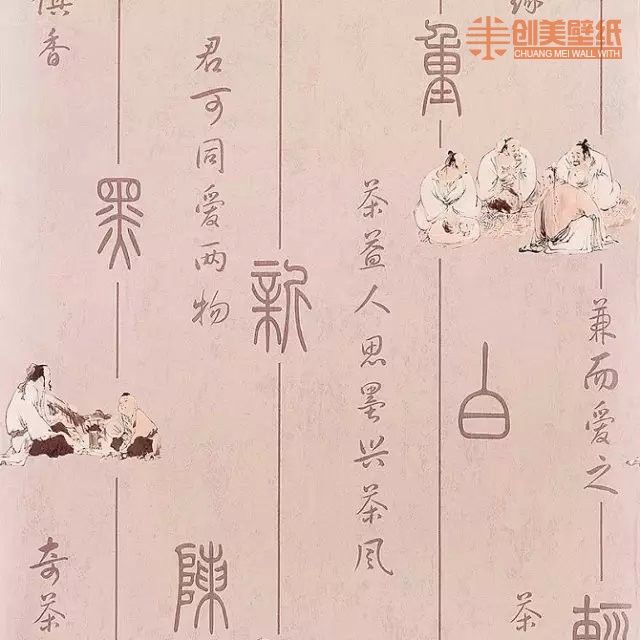 创美壁纸
CHUANG MEI WALL WITH
兼而爱之
輕
茶
重
白
茶益人思墨兴茶风
新
君可同爱两物
陳
黑
香
奇茶